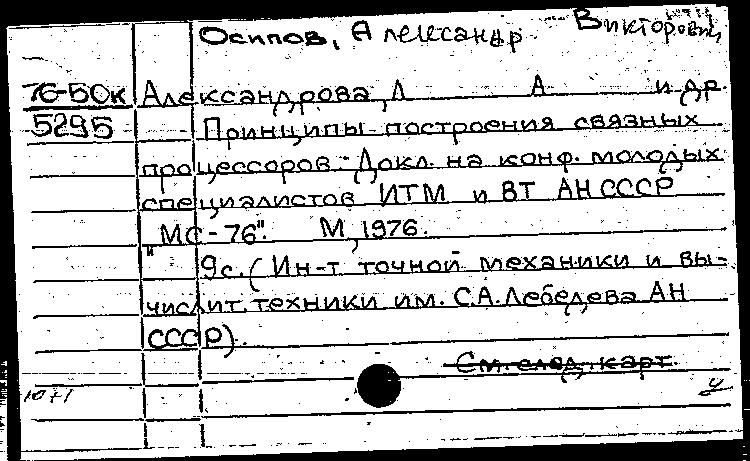 Осипов, Александр Викторович
76-50к Александрова, Л А и др.
5295 Принципы построения связных
процессоров. Докл. на конф. молодых
специалистов ИТМ и ВТ АН СССР
"МС-76". М, 1976.
9с. (Ин-т точной механики и вы-
числит. техники им. С.А.Лебедева АН
СССР).
См. след. карт.
10+1